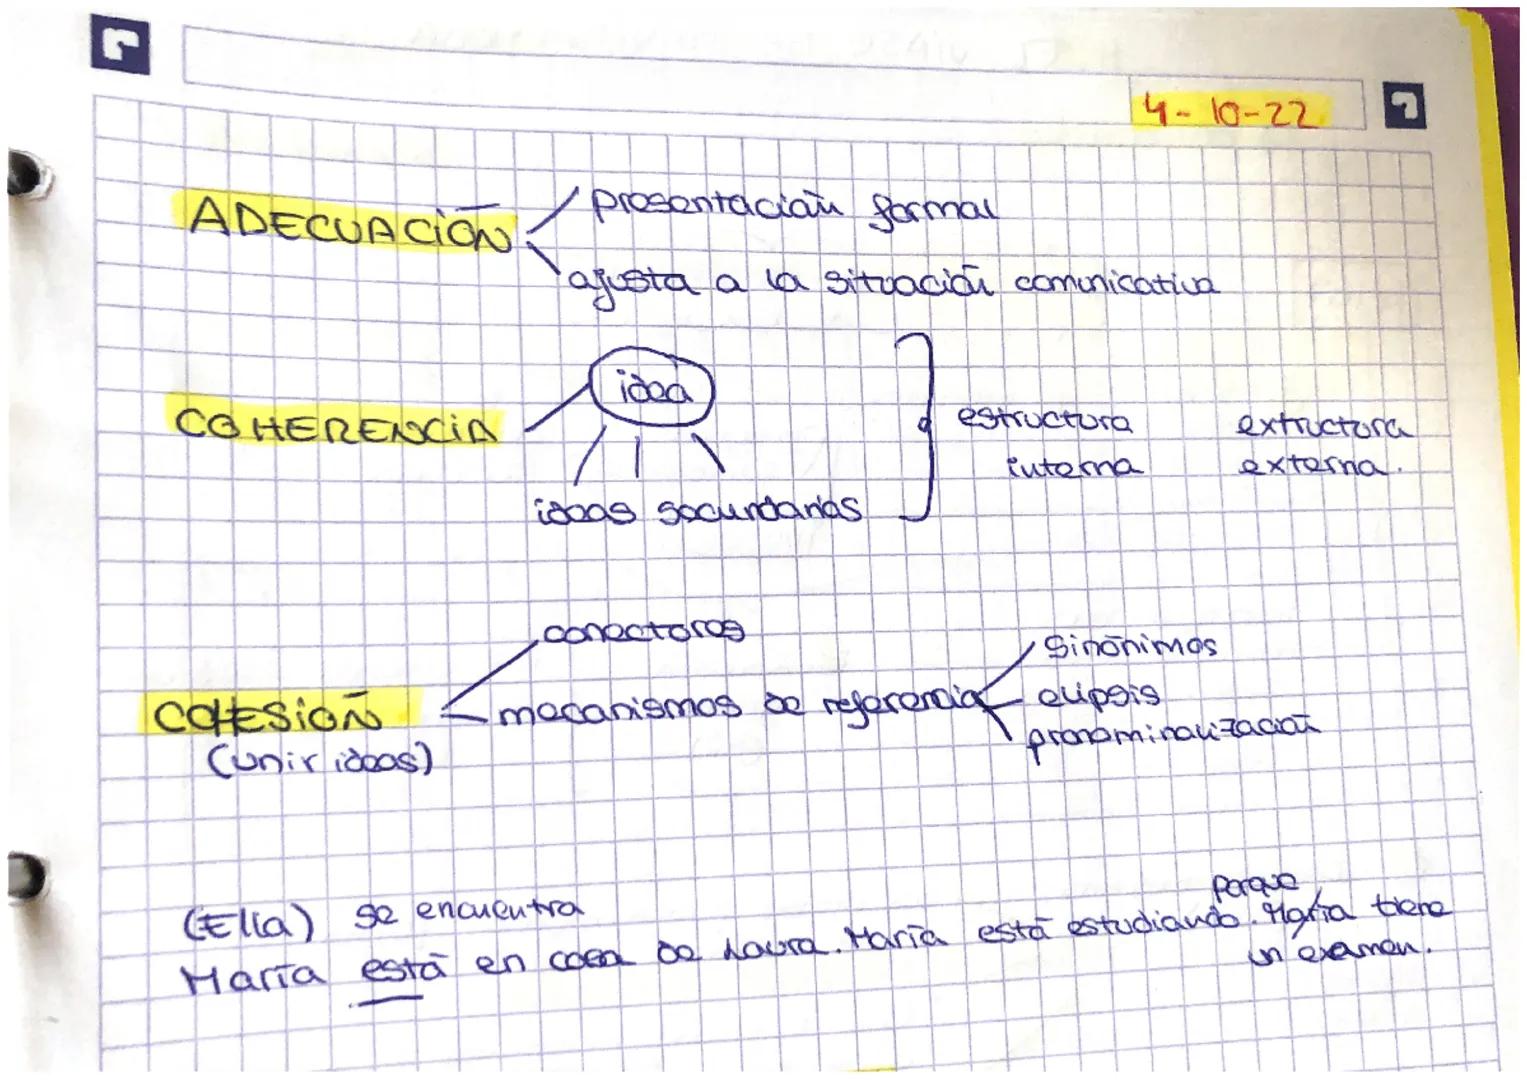 4-10-22
ADECUACIÓN
presentación formal
ajusta a la situación comunicativa
idea
COHERENCIA
estructura interna
extructura externa.
ideas secundarias
conectores
COHESIÓN
(unir ideas)
mecanismos de referencia
sinónimos
elipsis
pronominalización
(Ella) se encuentra
porque
María está en casa de Laura. María está estudiando. María tiene
un examen.